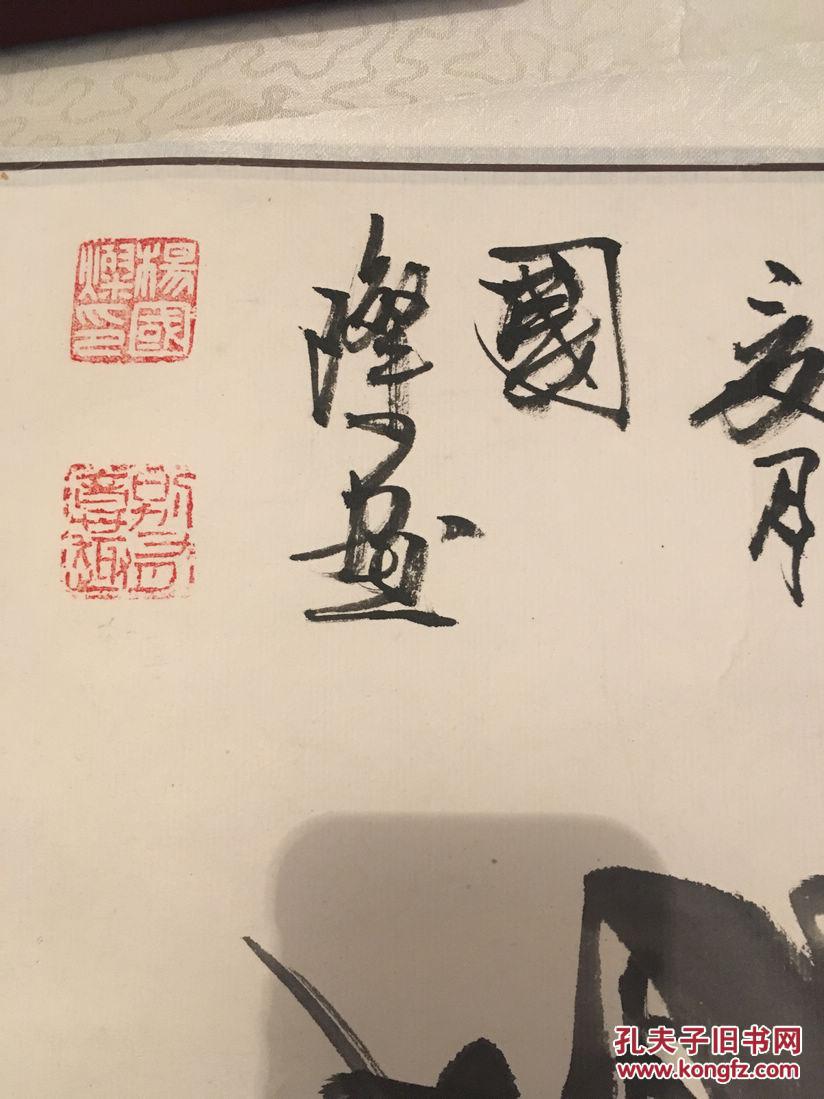 月
國
燦畫
楊國
燦印
別有
孔夫子旧书网
www.kongfz.com